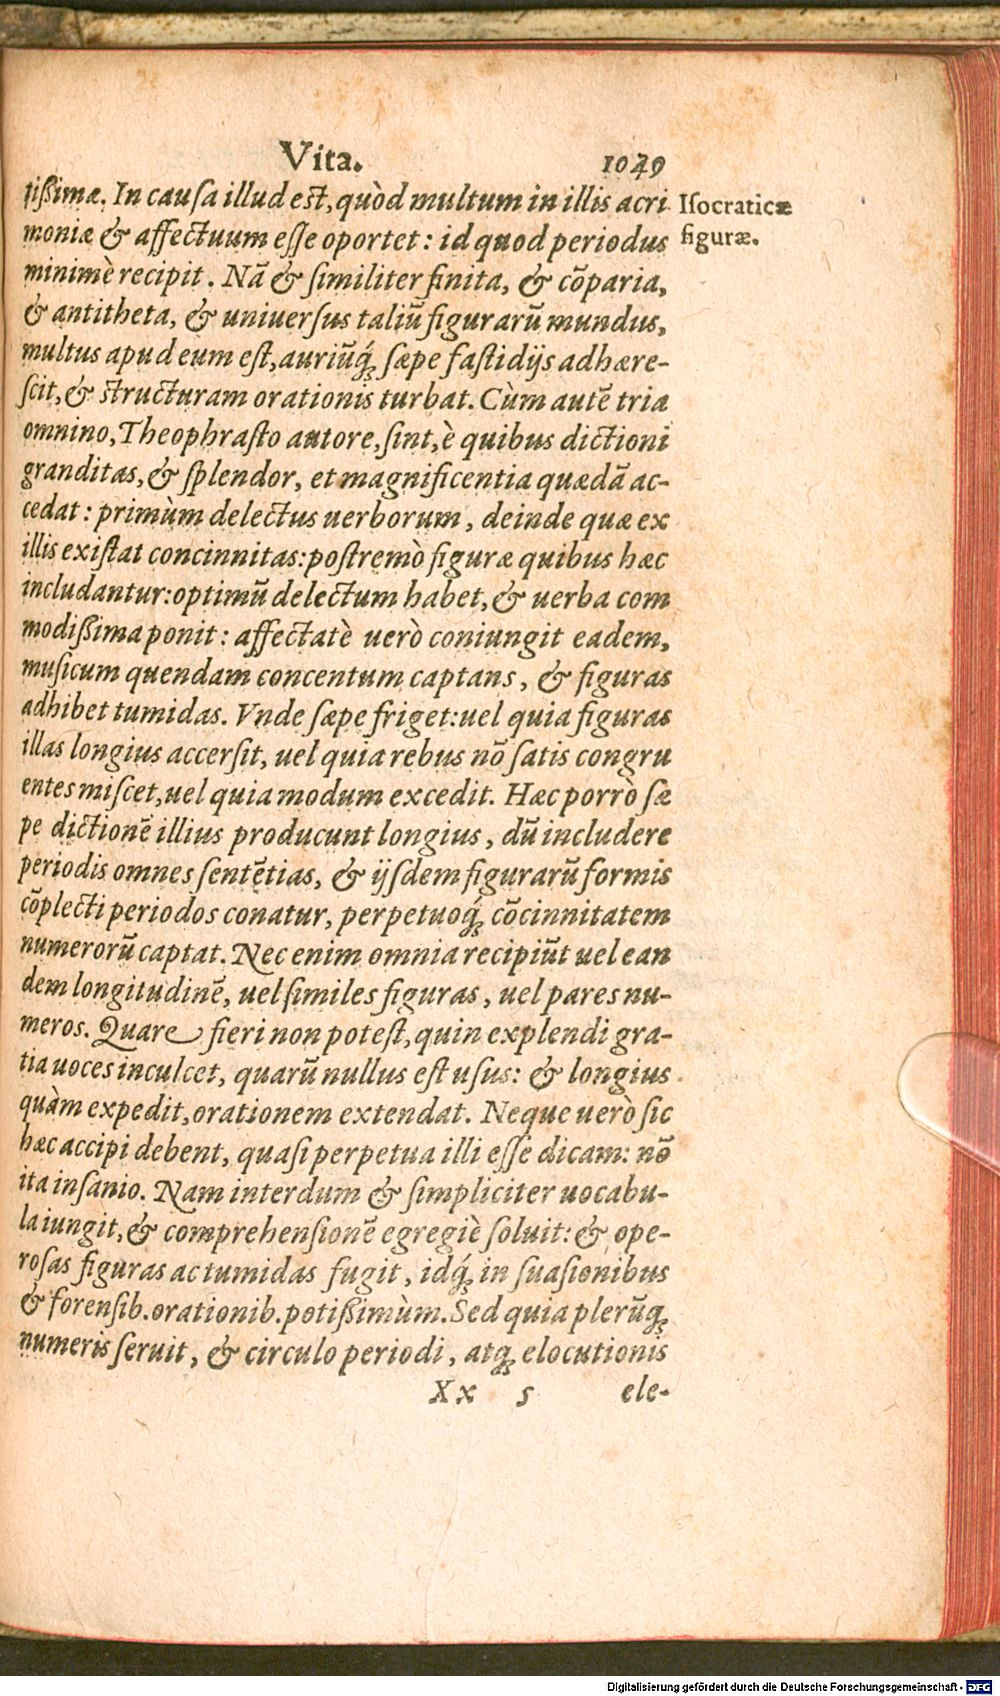 Vita. 1049
tißimæ. In causa illud est, quòd multum in illis acri
moniæ & affectuum esse oportet: id quod periodus
minimè recipit. Nã & similiter finita, & cõparia,
& antitheta, & uniuersus taliũ figurarũ mundus,
multus apud eum est, auriũq́; sæpe fastidijs adhære-
scit, & structuram orationis turbat. Cùm autẽ tria
omnino, Theophrasto autore, sint, è quibus dictioni
granditas, & splendor, et magnificentia quædã ac-
cedat: primùm delectus uerborum, deinde quæ ex
illis existat concinnitas: postremò figuræ quibus hæc
includantur: optimũ delectum habet, & uerba com
modißima ponit: affectatè uerò coniungit eadem,
musicum quendam concentum captans, & figuras
adhibet tumidas. Vnde sæpe friget: uel quia figuras
illas longius accersit, uel quia rebus nõ satis congru
entes miscet, uel quia modum excedit. Hæc porrò sæ
pe dictionẽ illius producunt longius, dũ includere
periodis omnes sentẽtias, & ijsdem figurarũ formis
cõplecti periodos conatur, perpetuoq́; cõcinnitatem
numerorũ captat. Nec enim omnia recipiũt uel ean
dem longitudinẽ, uel similes figuras, uel pares nu-
meros. Quare fieri non potest, quin explendi gra-
tia uoces inculcet, quarũ nullus est usus: & longius
quàm expedit, orationem extendat. Neque uerò sic
hæc accipi debent, quasi perpetua illi esse dicam: nõ
ita insanio. Nam interdum & simpliciter uocabu-
la iungit, & comprehensionẽ egregiè soluit: & ope-
rosas figuras ac tumidas fugit, idq́; in suasionibus
& forensib. orationib. potißimùm. Sed quia plerũq;
numeris seruit, & circulo periodi, atq; elocutionis
Xx 5 ele-
Isocraticæ
figuræ.
Digitalisierung gefördert durch die Deutsche Forschungsgemeinschaft - DFG